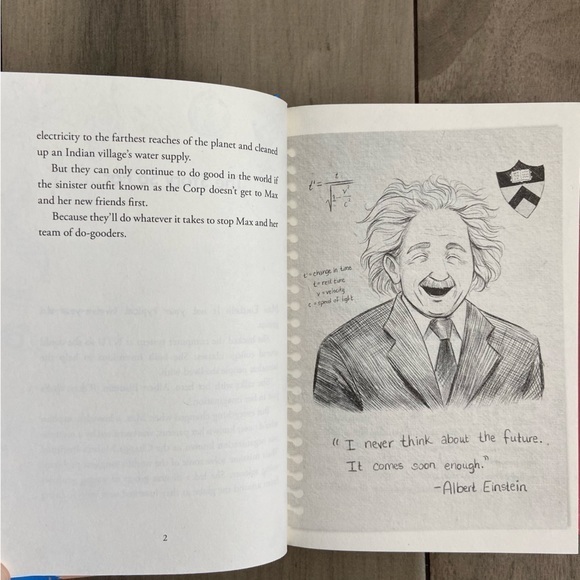 electricity to the farthest reaches of the planet and cleaned
up an Indian village's water supply.
But they can only continue to do good in the world if
the sinister outfit known as the Corp doesn't get to Max
and her new friends first.
Because they'll do whatever it takes to stop Max and her
team of do-gooders.
2
t' = t
√1- v²
c²
t' = change in time
t = rest time
v = velocity
c = speed of light
"I never think about the future..
It comes soon enough."
-Albert Einstein